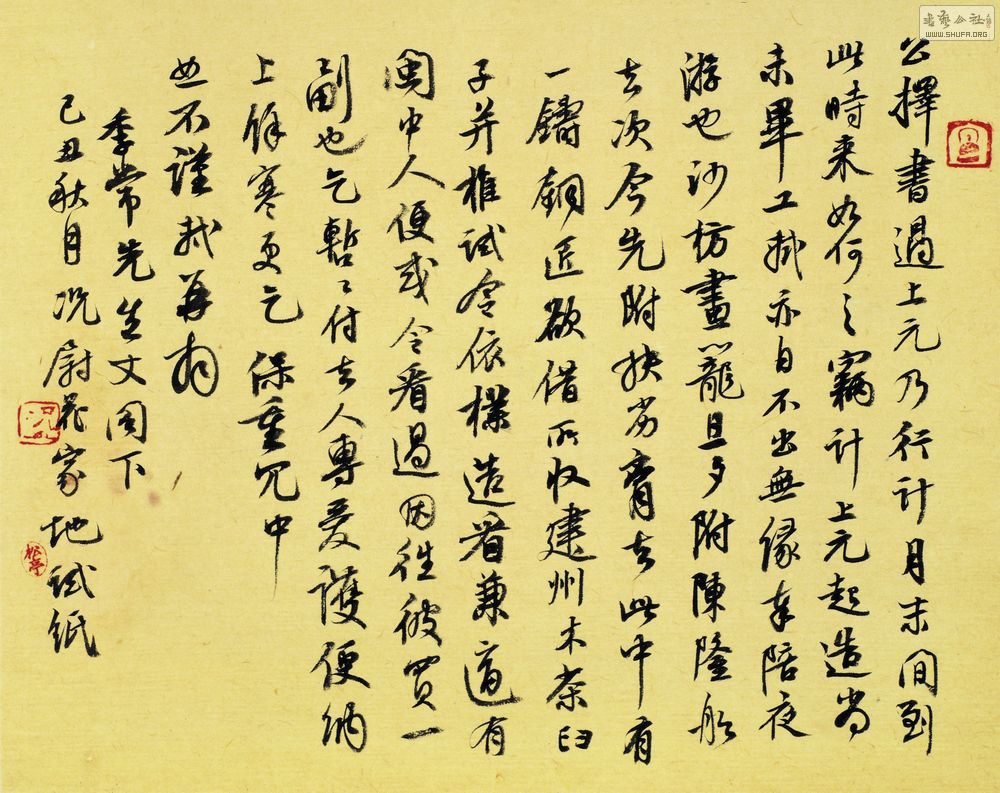 公擇書過上元乃行計月末間到
此時来如何〻竊計上元起造尚
未畢工軾亦自不出無緣奉陪夜
游也沙枋畫籠旦夕附陳隆船
去次今先附扶劣膏去此中有
一鑄銅匠欲借所收建州木茶臼
子并椎試令依樣造看兼適有
閩中人便或令看過因往彼買一
副也乞暫〻付去人專愛護便納
上餘寒更乞保重冗中
恕不謹軾再拜
季常先生丈閣下
己丑秋月况尉花家地試紙
松亭
WWW.SHUFA.ORG